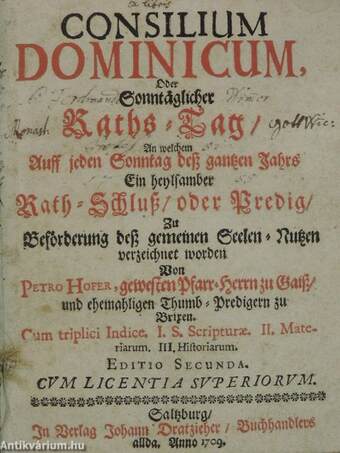 Ex libris
CONSILIUM
DOMINICUM,
Oder
Sonntäglicher
Raths-Tag/
An welchem
Auff jeden Sonntag deß gantzen Jahrs
Ein heylsamber
Rath-Schluß/ oder Predig/
Zu
Beförderung deß gemeinen Seelen-Nutzen
verzeichnet worden
Von
PETRO HOFER, gewesten Pfarr-Herrn zu Gaiß/
und ehemahligen Thumb-Predigern zu
Brixen.
Cum triplici Indice. I. S. Scripturæ. II. Mate-
riarum. III. Historiarum.
EDITIO SECUNDA.
CVM LICENTIA SVPERIORVM.
Saltzburg/
In Verlag Johann Dratzieher/ Buchhandlers
allda. Anno 1709.
Antikvárium.hu